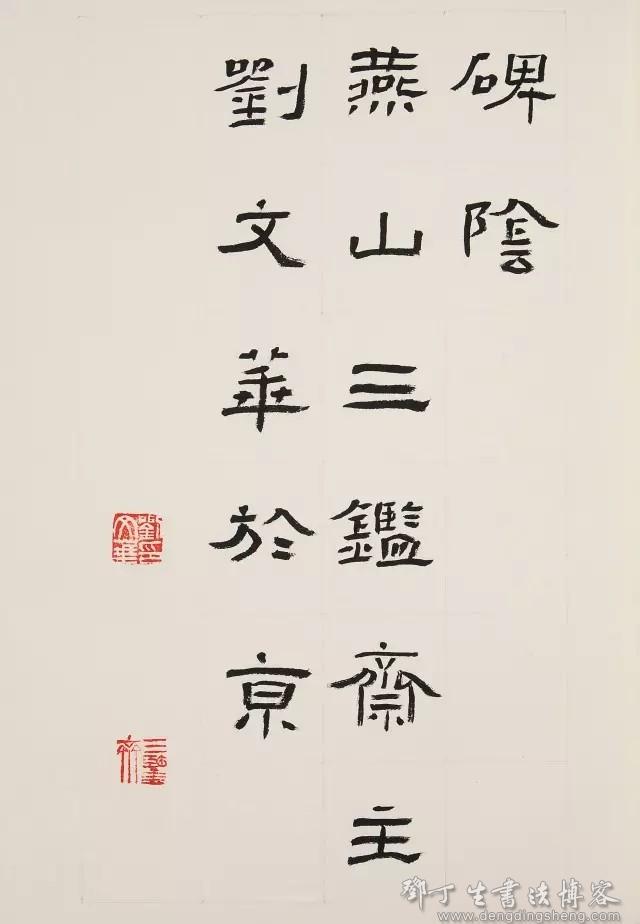 碑陰
燕山三鑑齋主
劉文華於亰
劉文華印
三鑒齋
鄧丁生書法博客
www.dengdingsheng.com